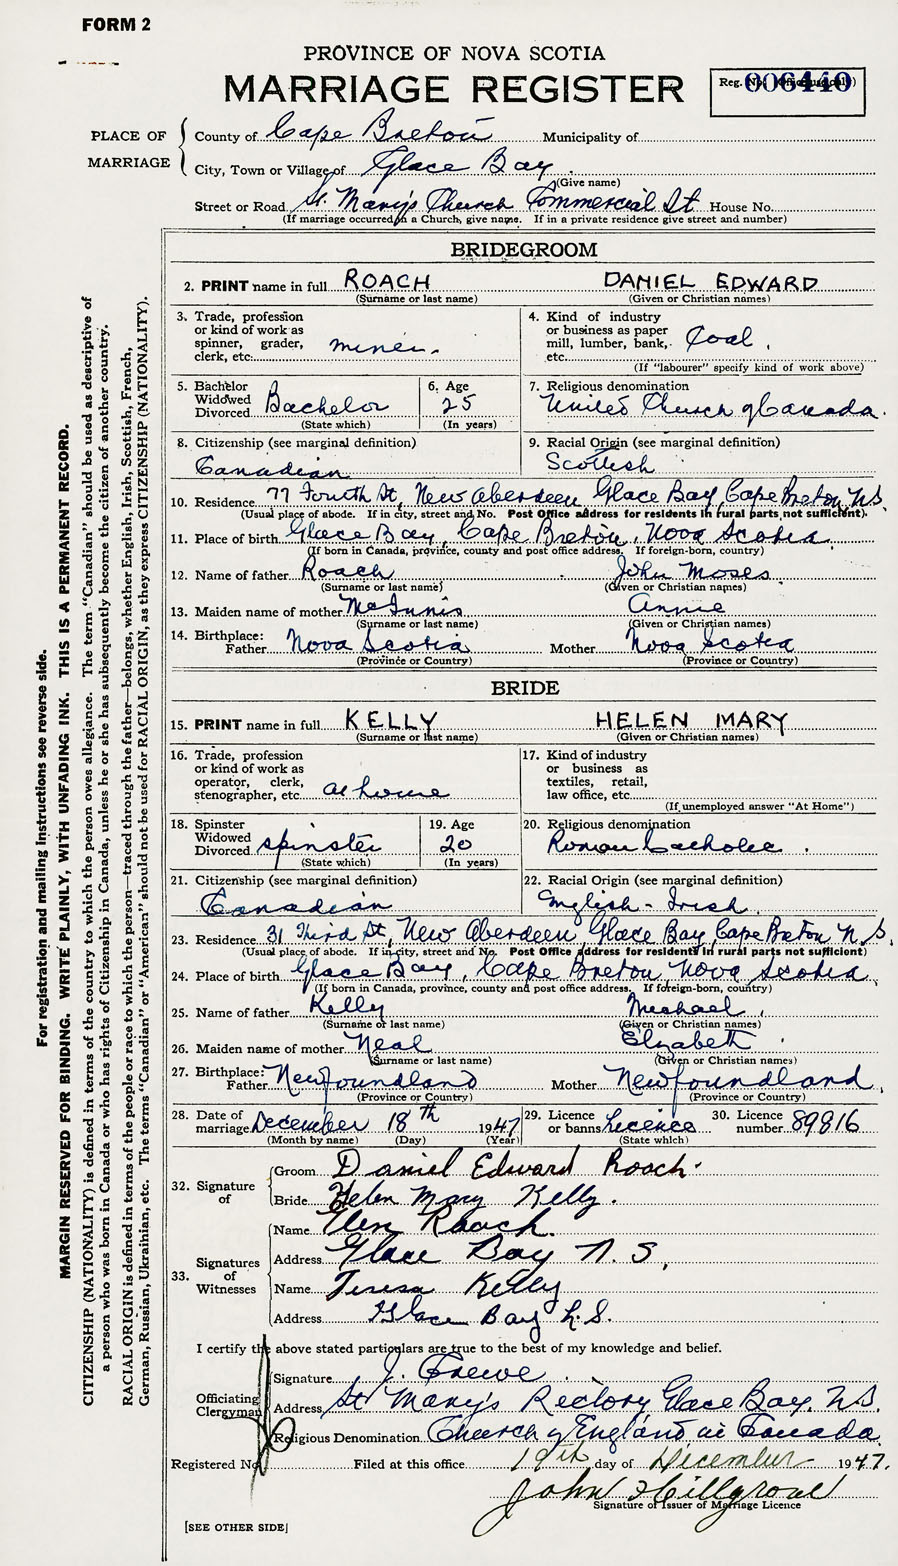 FORM 2
PROVINCE OF NOVA SCOTIA
MARRIAGE REGISTER
Reg. No. (Office use only)
006440
PLACE OF MARRIAGE
County of Cape Breton Municipality of
City, Town or Village of Glace Bay
(Give name)
Street or Road St. Mary's Church Commercial St House No.
(If marriage occurred in a Church, give name. If in a private residence give street and number)
BRIDEGROOM
2. PRINT name in full ROACH DANIEL EDWARD
(Surname or last name) (Given or Christian names)
3. Trade, profession or kind of work as spinner, grader, clerk, etc. miner.
4. Kind of industry or business as paper mill, lumber, bank, etc. Coal.
(If "labourer" specify kind of work above)
5. Bachelor Widowed Divorced Bachelor
(State which)
6. Age 25
(In years)
7. Religious denomination
United Church of Canada.
8. Citizenship (see marginal definition)
Canadian
9. Racial Origin (see marginal definition)
Scottish
10. Residence 77 Fourth St, New Aberdeen Glace Bay, Cape Breton, N.S.
(Usual place of abode. If in city, street and No. Post Office address for residents in rural parts not sufficient).
11. Place of birth Glace Bay, Cape Breton, Nova Scotia.
(If born in Canada, province, county and post office address. If foreign-born, country)
12. Name of father Roach John Moses
(Surname or last name) (Given or Christian names)
13. Maiden name of mother McInnis Annie
(Surname or last name) (Given or Christian names)
14. Birthplace:
Father Nova Scotia Mother Nova Scotia
(Province or Country) (Province or Country)
BRIDE
15. PRINT name in full KELLY HELEN MARY
(Surname or last name) (Given or Christian names)
16. Trade, profession or kind of work as operator, clerk, stenographer, etc. at home
17. Kind of industry or business as textiles, retail, law office, etc.
(If unemployed answer "At Home")
18. Spinster Widowed Divorced spinster
(State which)
19. Age 20
(In years)
20. Religious denomination
Roman Catholic.
21. Citizenship (see marginal definition)
Canadian
22. Racial Origin (see marginal definition)
English - Irish.
23. Residence 31 Third St, New Aberdeen Glace Bay, Cape Breton N.S.
(Usual place of abode. If in city, street and No. Post Office address for residents in rural parts not sufficient)
24. Place of birth Glace Bay, Cape Breton Nova Scotia
(If born in Canada, province, county and post office address. If foreign-born, country)
25. Name of father Kelly Michael.
(Surname or last name) (Given or Christian names)
26. Maiden name of mother Neal Elizabeth
(Surname or last name) (Given or Christian names)
27. Birthplace:
Father Newfoundland Mother Newfoundland,
(Province or Country) (Province or Country)
28. Date of marriage December 18th 1947
(Month by name) (Day) (Year)
29. Licence or banns Licence
(State which)
30. Licence number 89816
32. Signature of
Groom Daniel Edward Roach.
Bride Helen Mary Kelly.
33. Signatures of Witnesses
Name Roach.
Address Glace Bay N.S.
Name Teresa Kelly
Address Glace Bay N.S.
I certify the above stated particulars are true to the best of my knowledge and belief.
Officiating Clergyman
Signature J.
Address St Mary's Rectory Glace Bay. N.S.
Religious Denomination Church of England in Canada
Registered No. Filed at this office 19th day of December 1947.
John Hillgrove
Signature of Issuer of Marriage Licence
[SEE OTHER SIDE]
For registration and mailing instructions see reverse side.
MARGIN RESERVED FOR BINDING. WRITE PLAINLY, WITH UNFADING INK. THIS IS A PERMANENT RECORD.
CITIZENSHIP (NATIONALITY) is defined in terms of the country to which the person owes allegiance. The term "Canadian" should be used as descriptive of
a person who was born in Canada or who has rights of Citizenship in Canada, unless he or she has subsequently become the citizen of another country.
RACIAL ORIGIN is defined in terms of the people or race to which the person—traced through the father—belongs, whether English, Irish, Scottish, French,
German, Russian, Ukrainian, etc. The terms "Canadian" or "American" should not be used for RACIAL ORIGIN, as they express CITIZENSHIP (NATIONALITY).